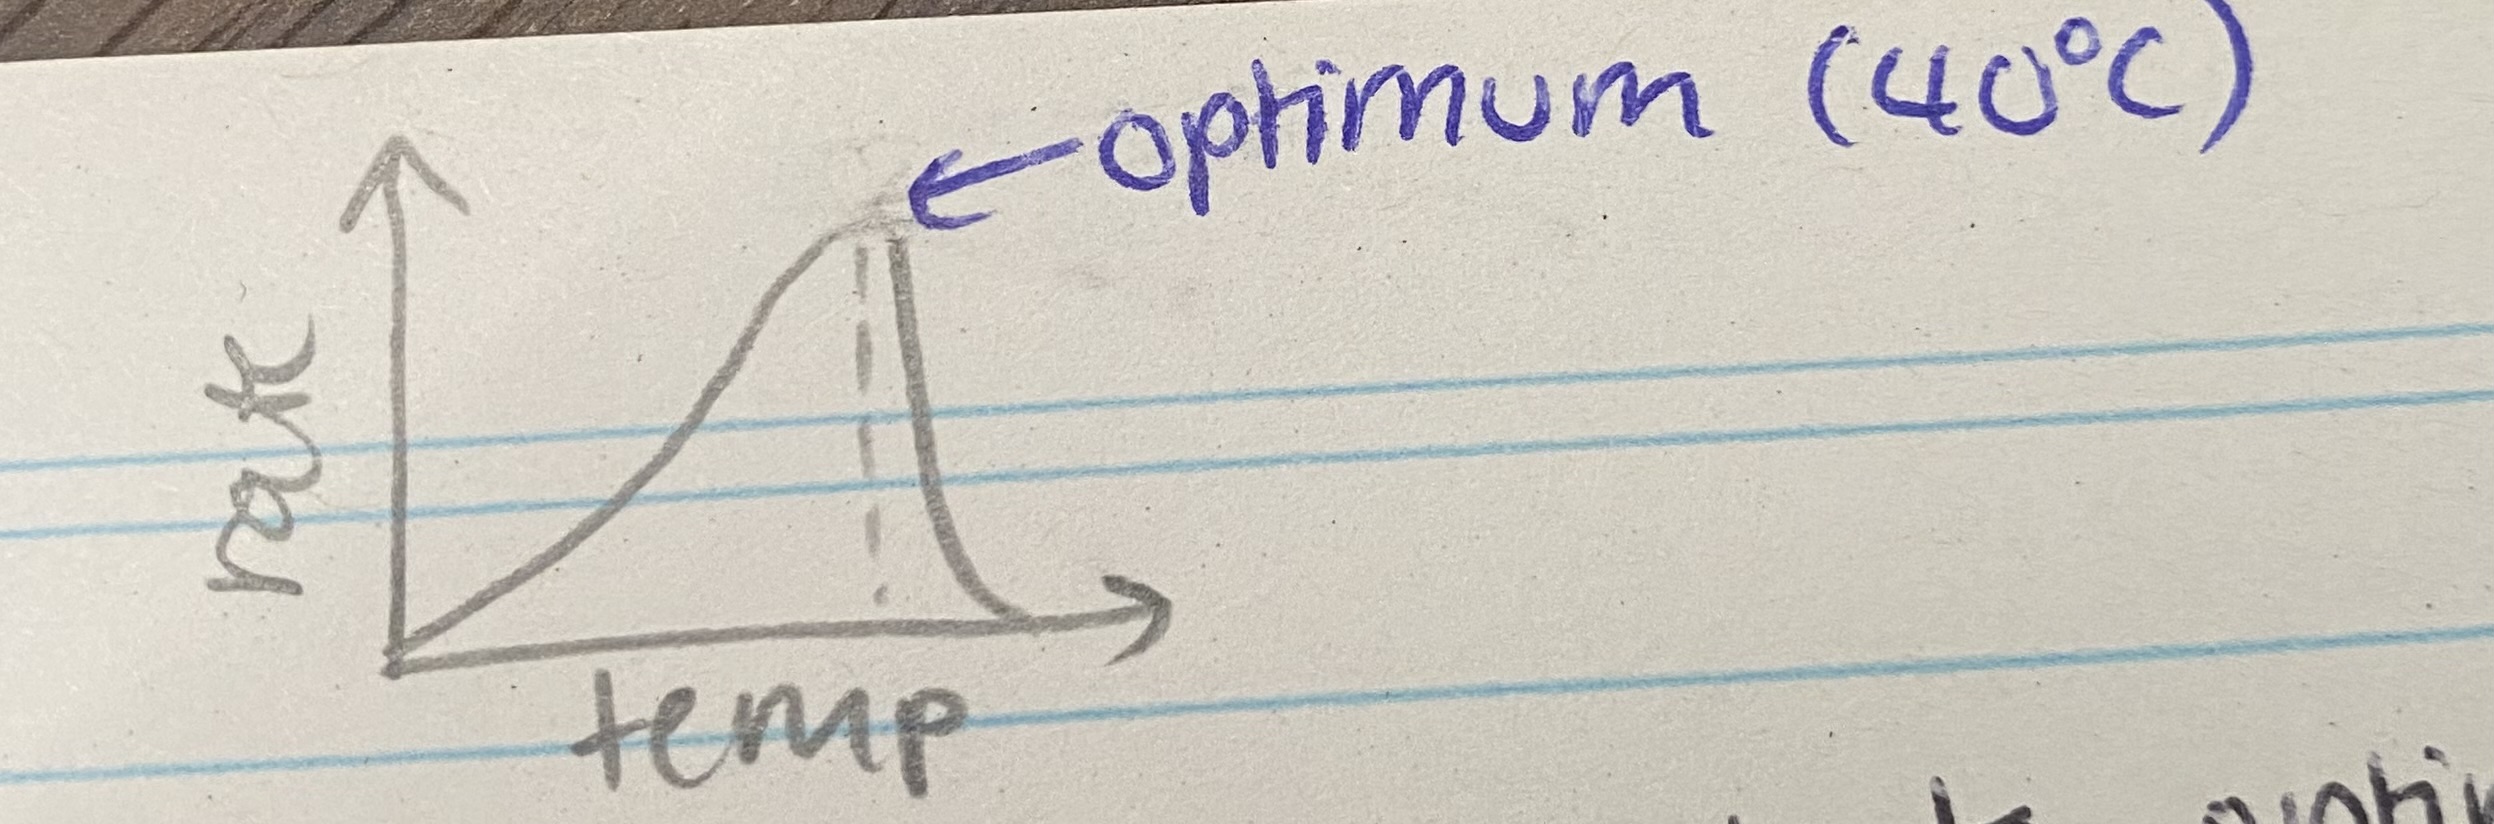 optimum (40°C)
rate
temp